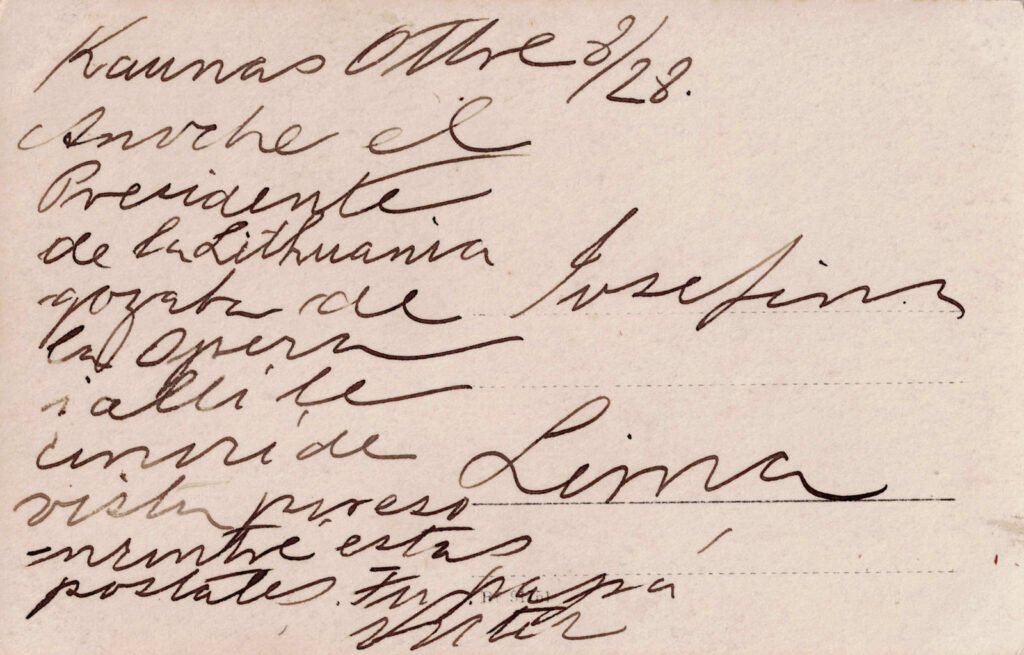 Kaunas Ottbre 8/28.
Anoche el
Presidente
de la Lithuania
gozaba de
la opera
i alli le
conocí de
vista por eso
encontré estas
postales. Tu papá
Victor
Josefina
Lima